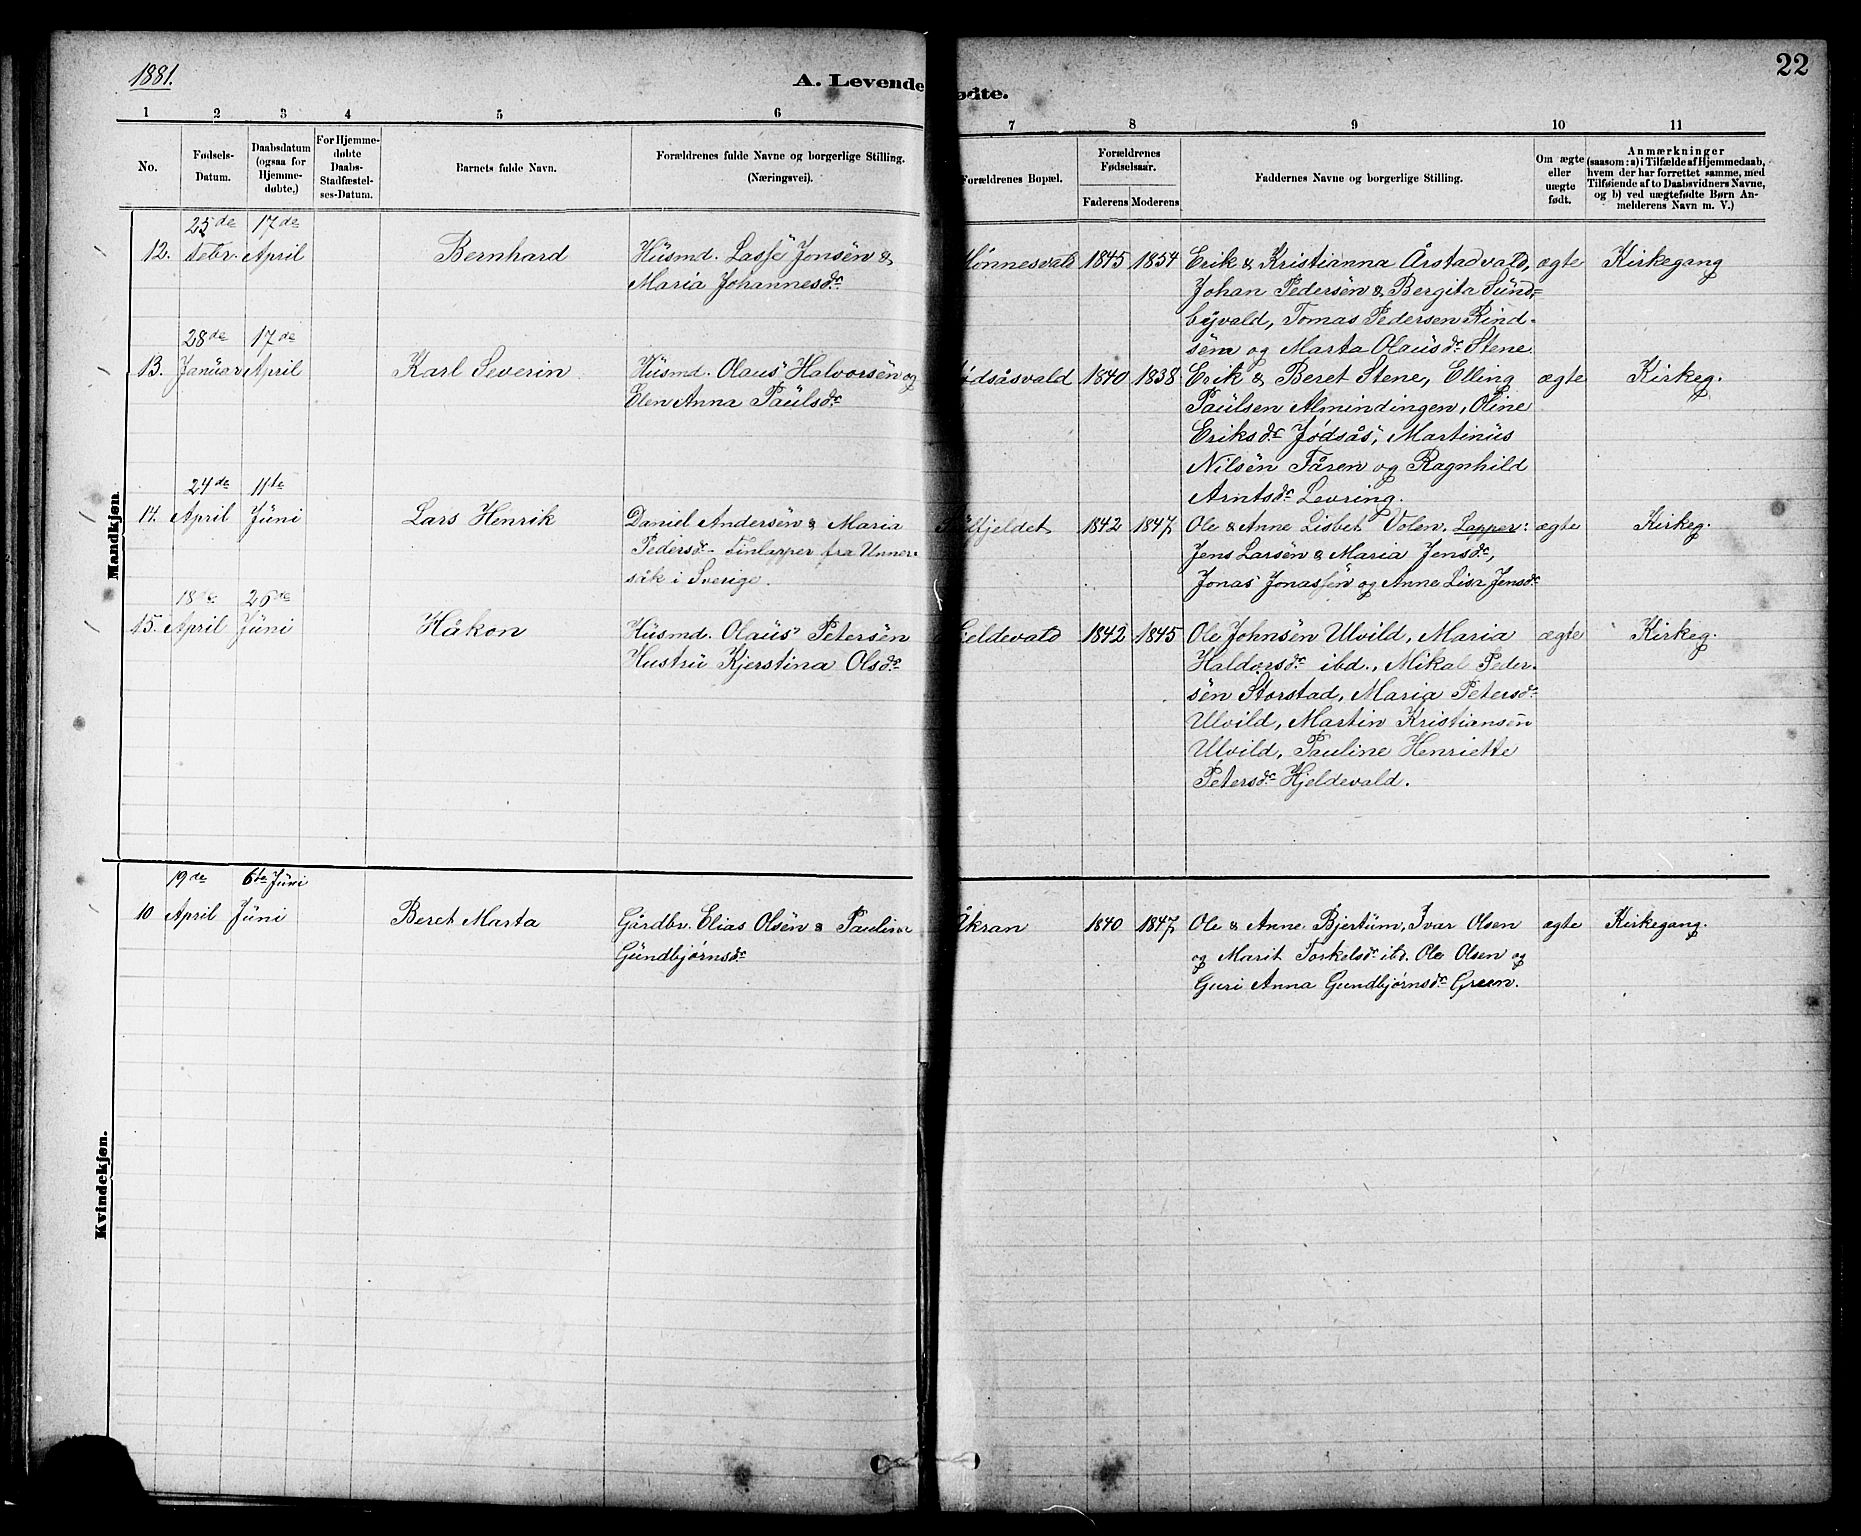 1881.
A. Levende
ødte.
22
1 2 3 4 5 6 7 8 9 10 11
No.
Fødsels-
Datum.
Daabsdatum
(ogsaa for
Hjemme-
døbte.)
For Hjemme-
døbte
Daabs-
Stadfæstel-
ses-Datum.
Barnets fulde Navn.
Forældrenes fulde Navne og borgerlige Stilling.
(Næringsvei).
Forældrenes Bopæl.
Forældrenes
Fødselsaar.
Faderens Moderens
Faddernes Navne og borgerlige Stilling.
Om ægte
eller
uægte
født.
Anmærkninger
(saasom: a) i Tilfælde af Hjemmedaab,
hvem der har forrettet samme, med
Tilføiende af to Daabsvidners Navne,
og b) ved uægtefødte Børn An-
melderens Navn m. V.)
Mandkjøn.
25de 17de
12. Febr. April Bernhard Husmd. Lasse Jonsen & Hønnesvald 1845 1854 Erik & Kristianna Årstadvald, ægte Kirkegang
Maria Johannesdr Johan Pedersen & Bergita Sund-
byvald, Tomas Pedersen Rind-
sem og Marta Olausdr Stene.
28de 17de
13. Januar April Karl Severin Husmd. Olaus Halvorsen og Jødsåsvald 1840 1838 Erik & Beret Stene, Elling ægte Kirkeg.
Elen Anna Paulsdr Paulsen Almindingen, Oline
Eriksdr Jødsås, Martinus
Nilsen Tåren og Ragnhild
Arntsdr Levring.
24de 11te
14. April Juni Lars Henrik Daniel Andersen & Maria fjeldet 1842 1847 Ole & Anne Lisbet Volen. Lapper: ægte Kirkeg.
Pedersdr Finlapper fra Unner- Jens Larsen & Maria Jensdr,
såk i Sverige. Jonas Jonassen og Anne Lisa Jensdr
18de 26de
15. April Juni Håkon Husmd. Olaus Petersen jeldevald 1842 1845 Ole Johnsen Ulvild, Maria ægte Kirkeg.
Hustru Kjerstina Olsdr Haldorsdr ibd., Mikal Peder-
sen Storstad, Maria Petersdr
Ulvild, Martin Kristiansen
Ulvild, Pauline Henriette
Petersdr Hjeldevald.
Kvindekjøn.
19de 6te Juni
10 April Juni Beret Marta Gårdbr. Elias Olsen & Paulina Åkran 1840 1847 Ole & Anne Bjertum, Ivar Olsen ægte Kirkegang.
Gundbjørnsdr og Marit Torkelsdr ibd. Ole Olsen og
Guri Anna Gundbjørnsdr Green.